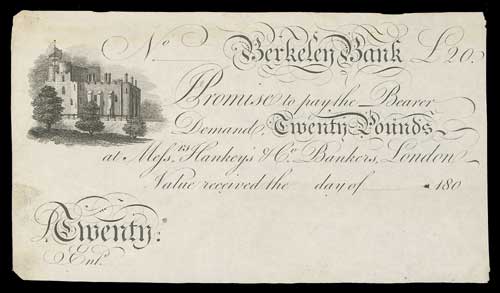 No Berkeley Bank £20.
Promise to pay the Bearer
Demand, Twenty Pounds
at Messrs. Hankey's & Co. Bankers, London
Value received the day of 180
Twenty:
Entd.